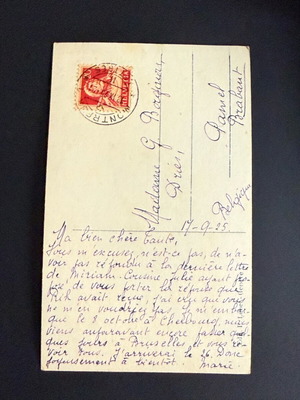 MONTRE
HELVETIA
Madame G.
Dries
Gamel
Brabant
Belgique
17-9-25
Ma bien chère tante,
Vous m'excusez, n'est-ce pas, de n'a-
voir pas répondu à la dernière lettre
de Miriam. Cousine Julie ayant
de vous porter la réponse que
avait reçue, j'ai cru que vous
ne m'en voudriez pas. Je m'embar-
que le 8 octobre à Cherbourg, mais
viens auparavant encore passer quel-
ques jours à Bruxelles et vous re-
voir tous. J'arriverai le 26. Donc
joyeusement à bientôt.
Marie.